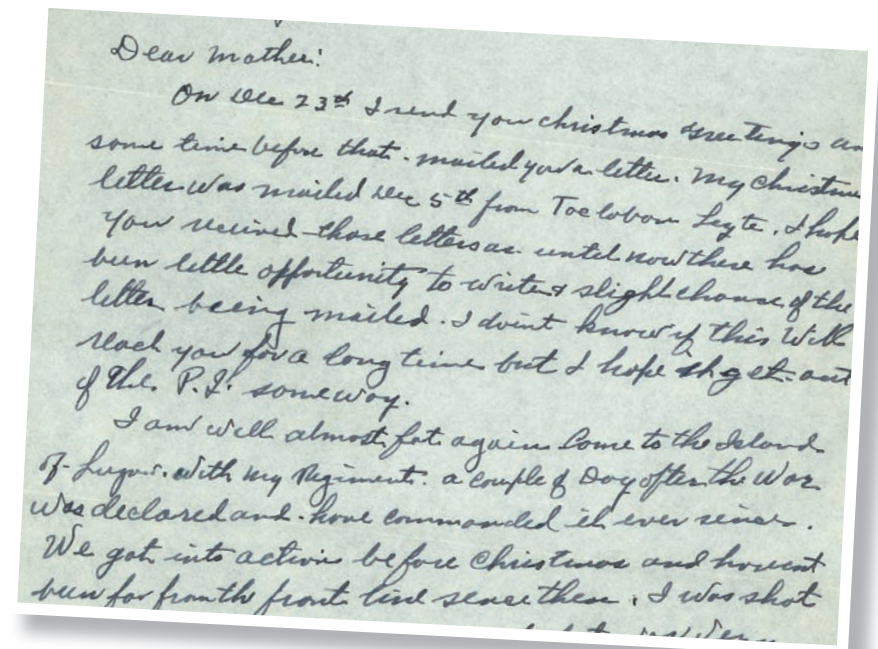 Dear Mother:
On Dec 23rd I send you christmas greetings an
some time before that. mailed you a letter. My Christmas
letter was mailed Dec 5th from Tacloban Leyte. I hope
you received those letters as until now there has
been little opportunity to write & slight chance of the
letter being mailed. I don't know if this will
reach you for a long time but I hope it get out
of the P.I. some way.
I am well almost fat again Come to the Island
of Luzon with my Regiment a couple of Day after the War
was declared and have commanded it ever since.
We got into action before Christmas and havent
been far from th front line since then. I was shot